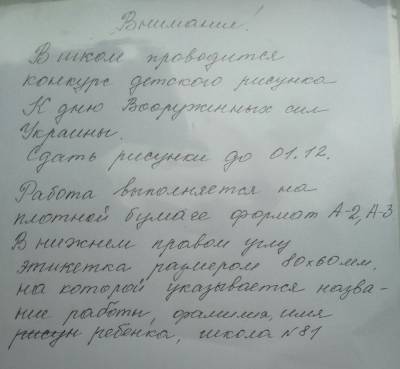 Внимание!
В школе проводится
конкурс детского рисунка
К дню Вооруженных сил
Украины.
Сдать рисунки до 01.12.
Работа выполняется на
плотной бумаге формат А-2, А-3
В нижнем правом углу
этикетка размером 80х60мм,
на которой указывается назва-
ние работы, фамилия, имя
рисун ребенка, школа N81